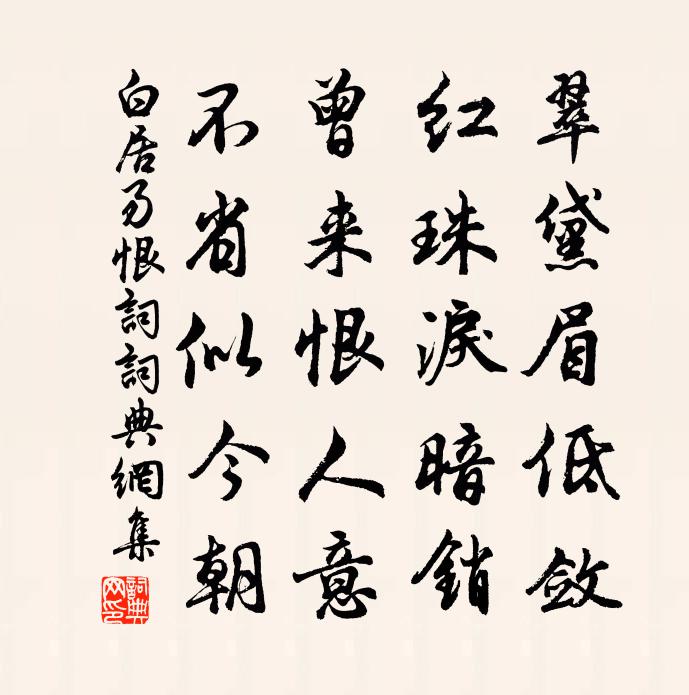 翠黛眉低敛
红珠淚暗銷
曾来恨人意
不省似今朝
白居易恨詞詞典網集
詞典网印